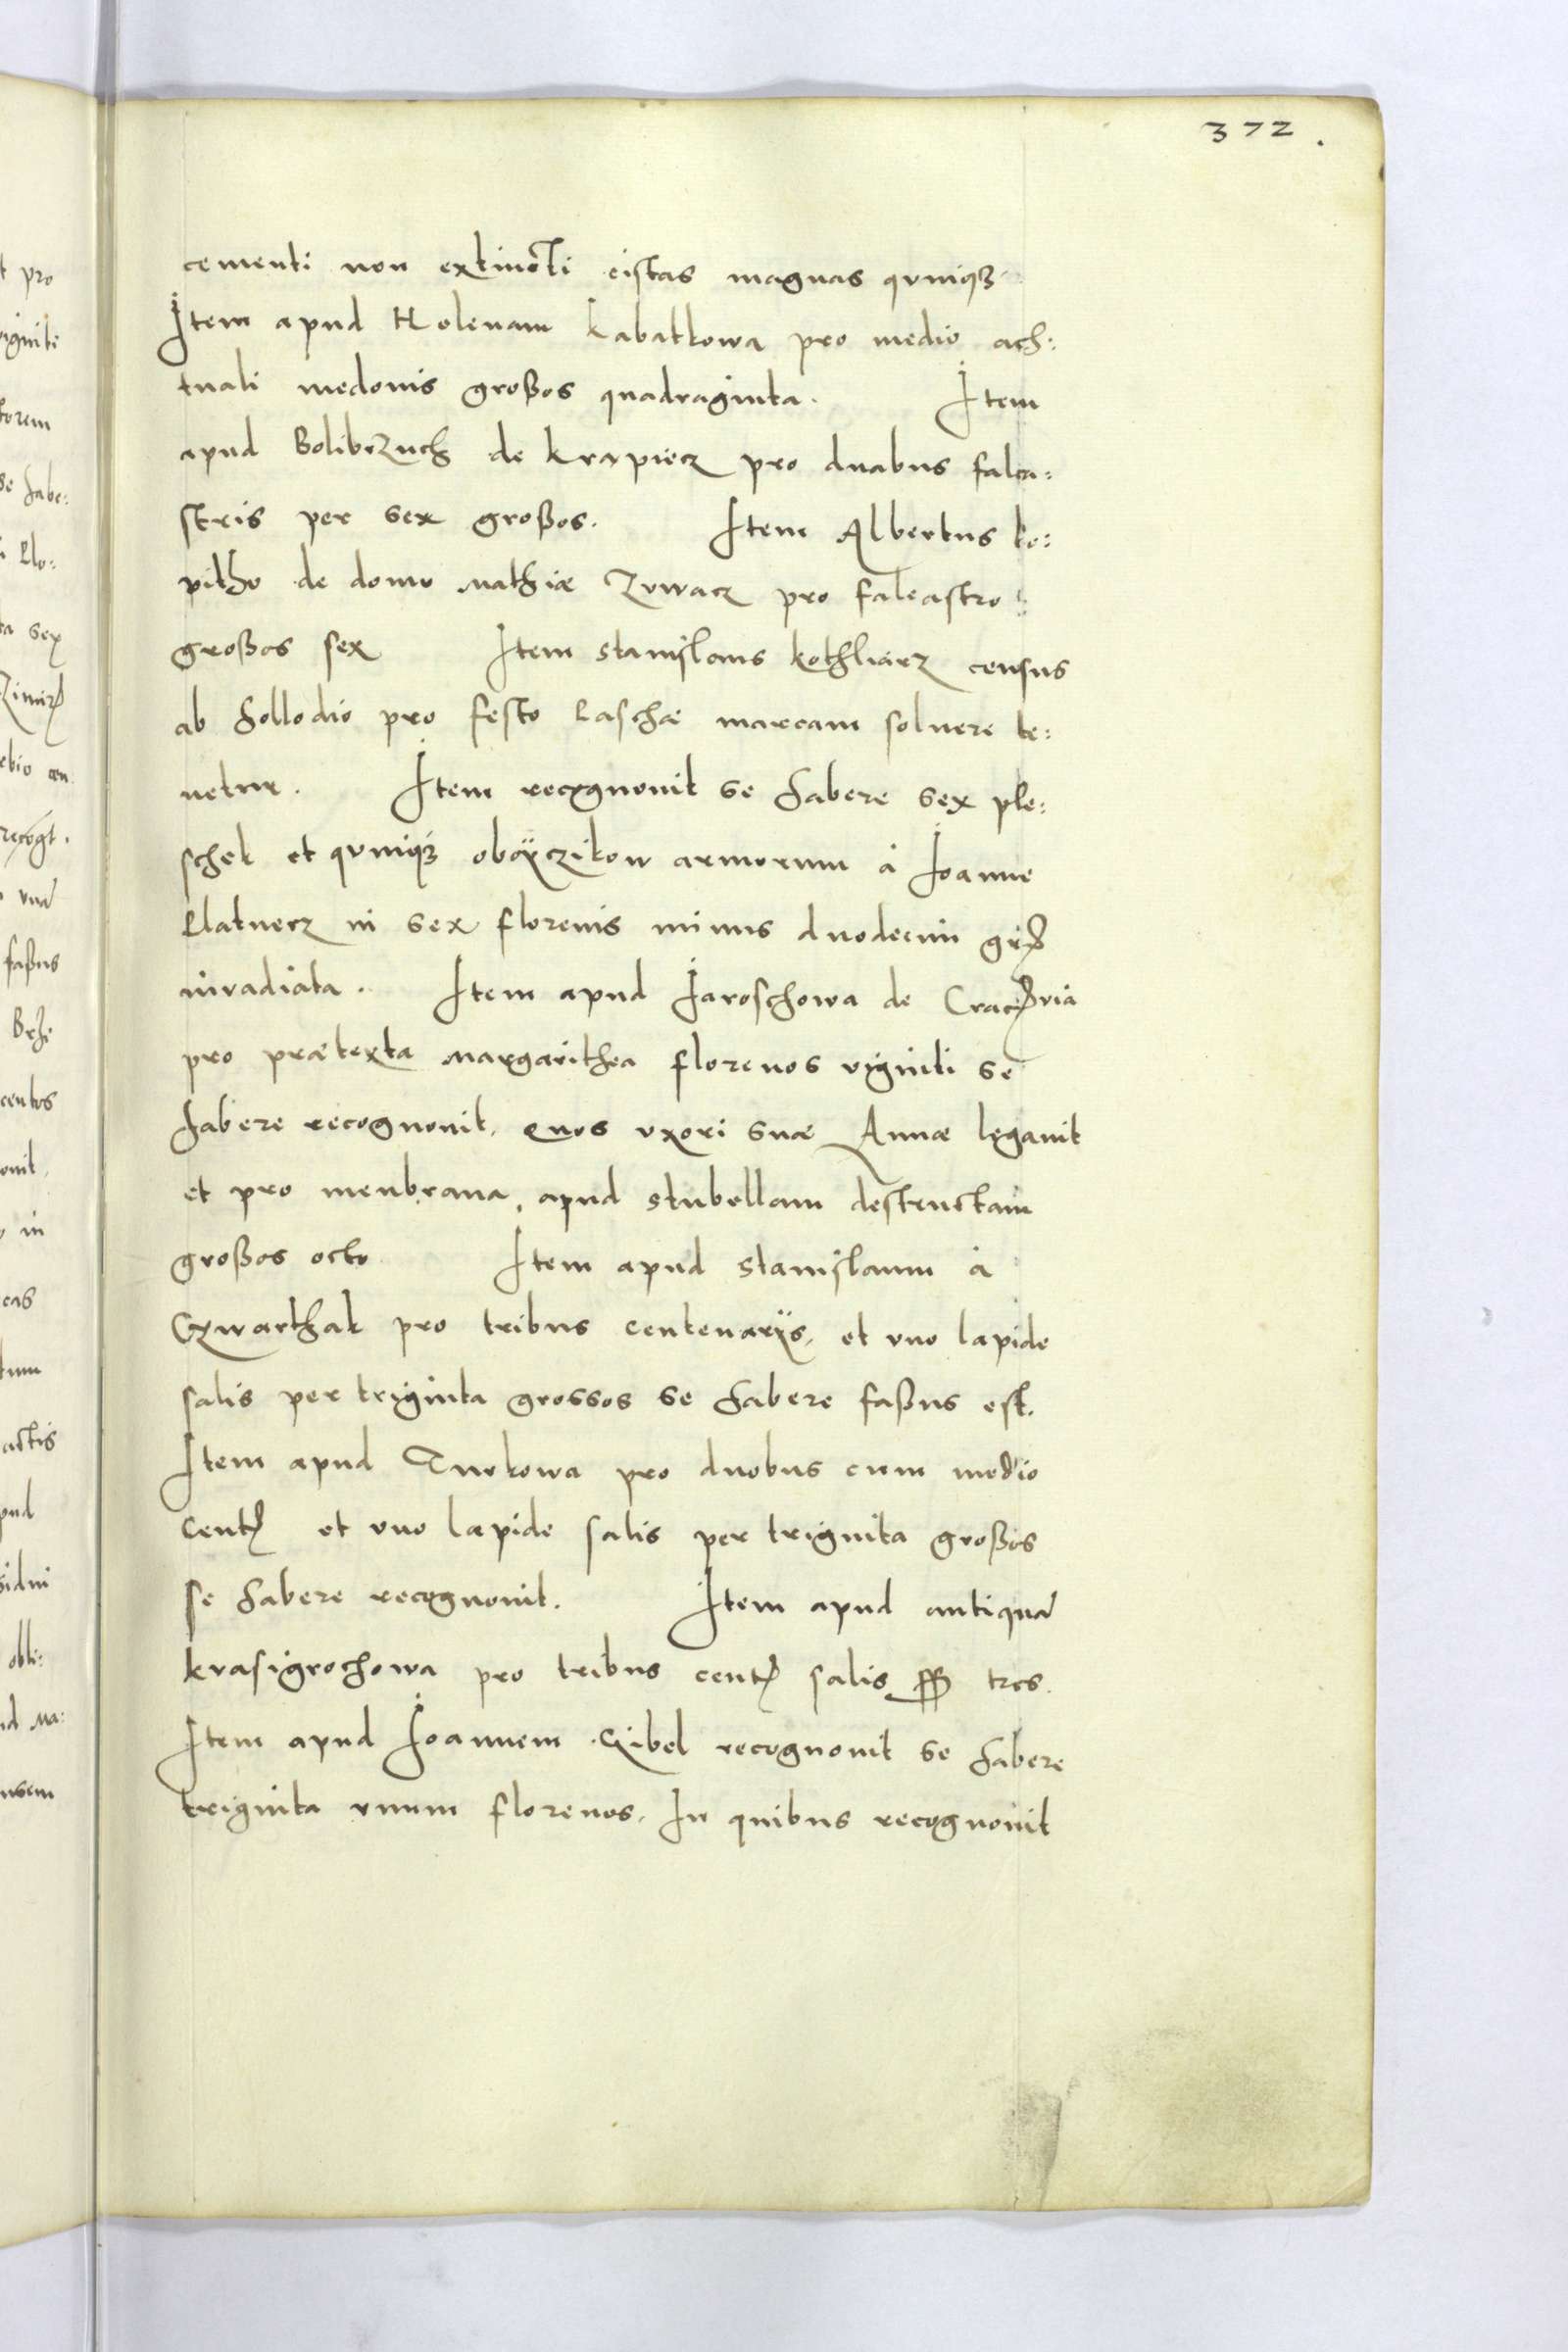 372.
cementi non extincti cistas magnas quinq3
Item apud Holenam Kabatkowa pro medio ach:
tuali medonis großos quadraginta. Item
apud Bolibrzuch de Krapiecz pro duabus falca:
stris per sex großos. Item Albertus Ko:
pitho de domo Mathiæ Zvwacz pro falcastro
großos sex Item Stanislaus Kothliarz census
ab hollodio pro festo Paschæ marcam soluere te:
netur. Item recognouit se habere sex ple:
schek et quinq3 oboÿczikow armorum à Joanne
Platnerz in sex florenis minus duodecim grß
inuadiata. Item apud Jaroschowa de
pro prætexta margarithea florenos viginti se
habere recognouit, quos vxori suæ Annæ legauit
et pro menbrana, apud stubellam destructam
großos octo Item apud Stanislaum à
Czwarthak pro tribus centenarÿs, et vno lapide
salis per triginta grossos se habere faßus est.
Item apud Turkowa pro duobus cum medio
cent et vno lapide salis per triginta großos
se habere recognouit. Item apud antiqua
Krasigrochowa pro tribus cent salis tres.
Item apud Joannem Czibel recognouit se habere
triginta vnum florenos, In quibus recognouit